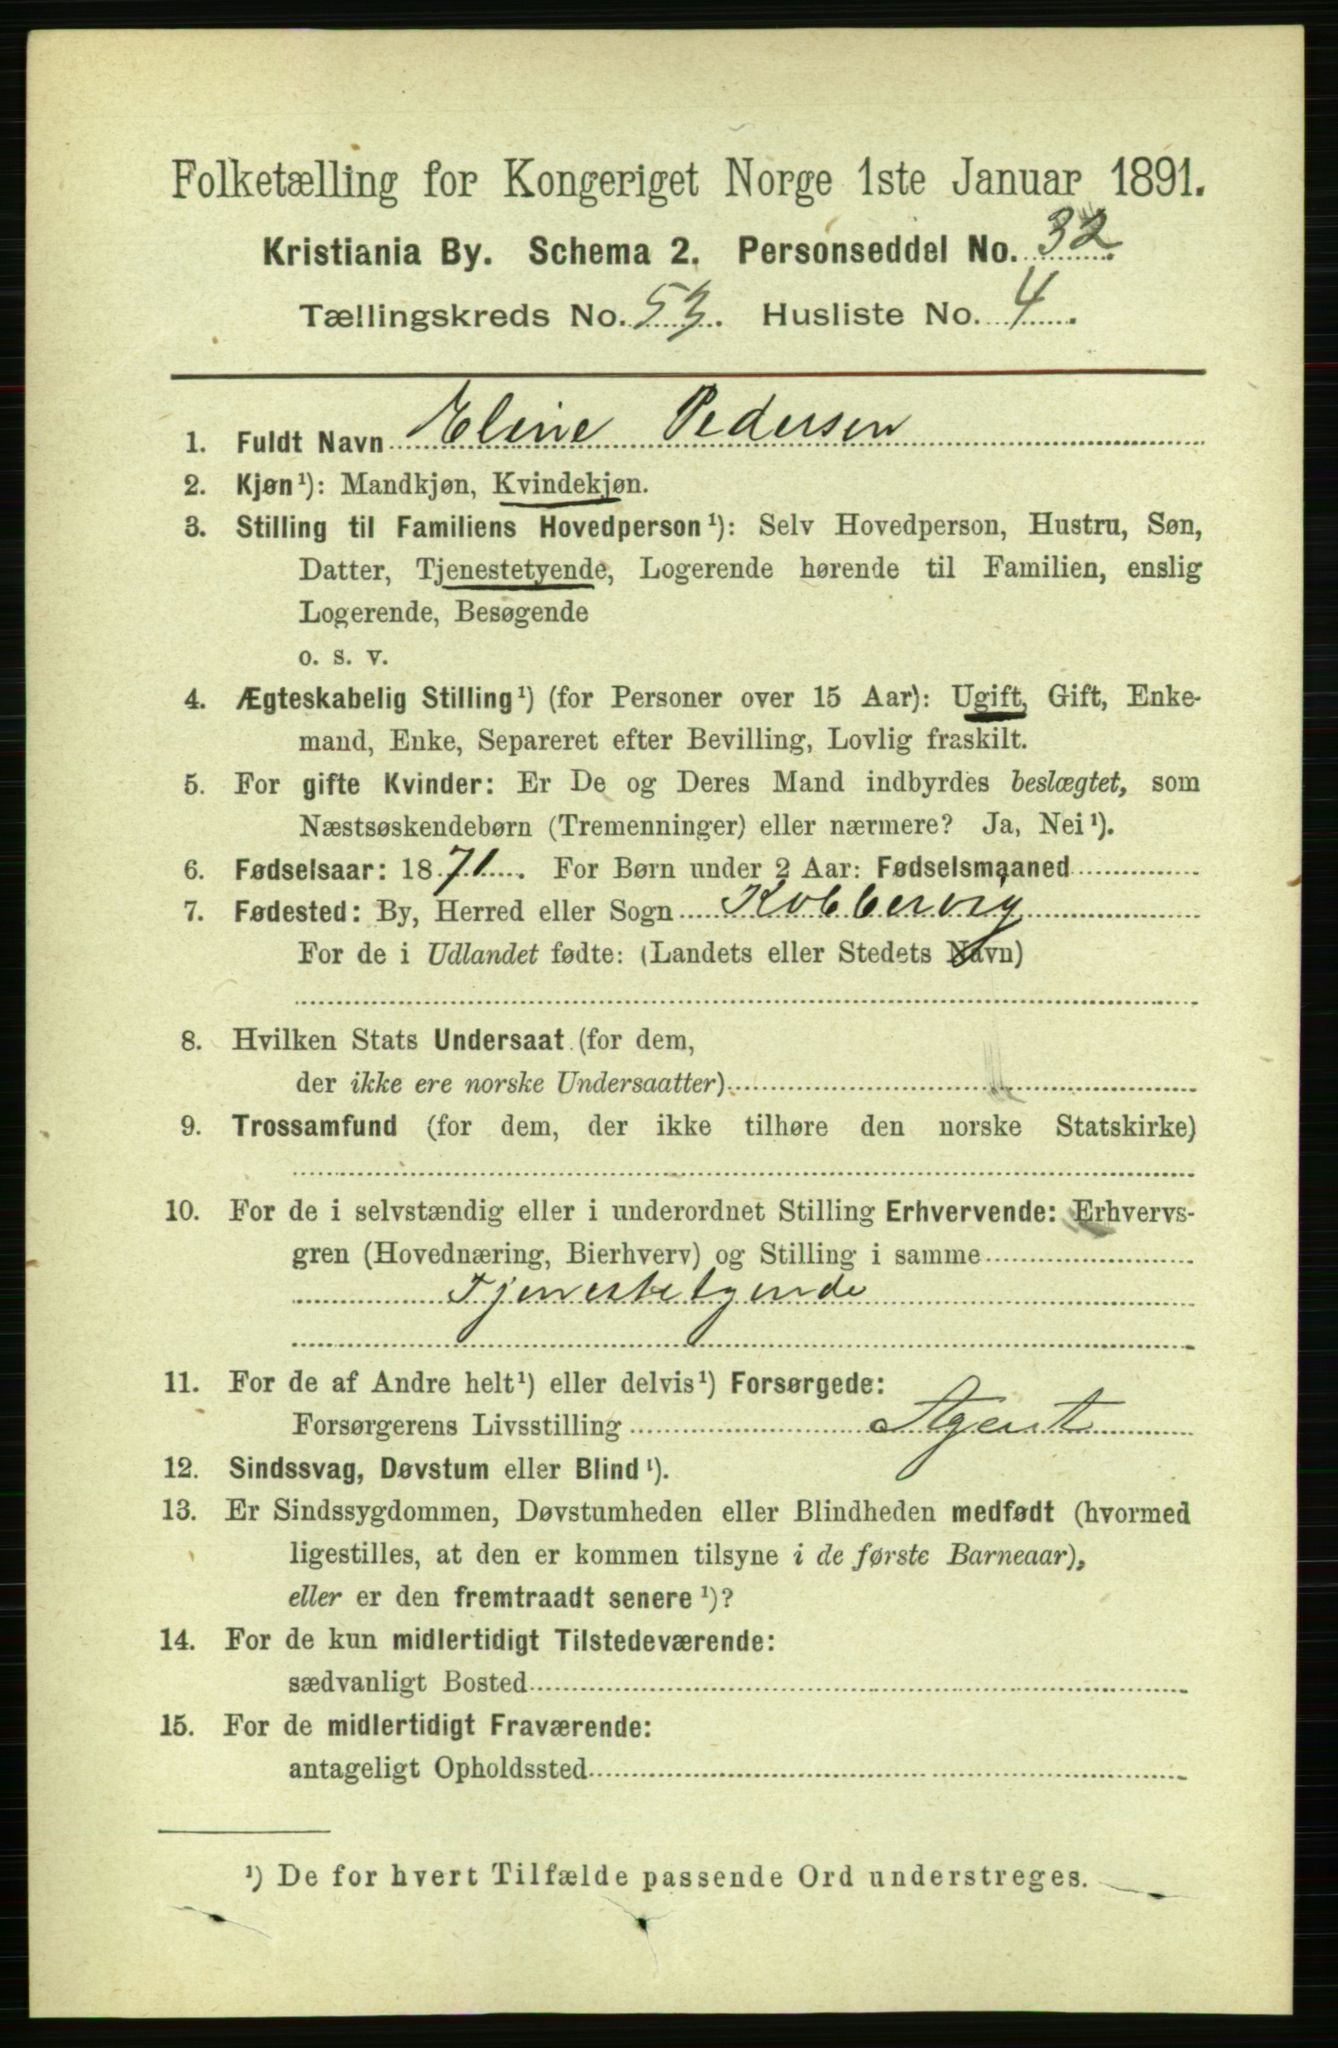 Folketælling for Kongeriget Norge 1ste Januar 1891.
Kristiania By. Schema 2. Personseddel No. 32
Tællingskreds No. 53. Husliste No. 4.
1. Fuldt Navn Eline Pedersen
2. Kjøn¹): Mandkjøn, Kvindekjøn.
3. Stilling til Familiens Hovedperson¹): Selv Hovedperson, Hustru, Søn,
Datter, Tjenestetyende, Logerende hørende til Familien, enslig
Logerende, Besøgende
o. s. v.
4. Ægteskabelig Stilling¹) (for Personer over 15 Aar): Ugift, Gift, Enke-
mand, Enke, Separeret efter Bevilling, Lovlig fraskilt.
5. For gifte Kvinder: Er De og Deres Mand indbyrdes beslægtet, som
Næstsøskendebørn (Tremenninger) eller nærmere? Ja, Nei¹).
6. Fødselsaar: 1871. For Børn under 2 Aar: Fødselsmaaned
7. Fødested: By, Herred eller Sogn Kobbervig
For de i Udlandet fødte: (Landets eller Stedets Navn)
8. Hvilken Stats Undersaat (for dem,
der ikke ere norske Undersaatter)
9. Trossamfund (for dem, der ikke tilhøre den norske Statskirke)
10. For de i selvstændig eller i underordnet Stilling Erhvervende: Erhvervs-
gren (Hovednæring, Bierhverv) og Stilling i samme
Tjenestetyende
11. For de af Andre helt¹) eller delvis¹) Forsørgede:
Forsørgerens Livsstilling Agent
12. Sindssvag, Døvstum eller Blind¹).
13. Er Sindssygdommen, Døvstumheden eller Blindheden medfødt (hvormed
ligestilles, at den er kommen tilsyne i de første Barneaar),
eller er den fremtraadt senere¹)?
14. For de kun midlertidigt Tilstedeværende:
sædvanligt Bosted
15. For de midlertidigt Fraværende:
antageligt Opholdssted
¹) De for hvert Tilfælde passende Ord understreges.